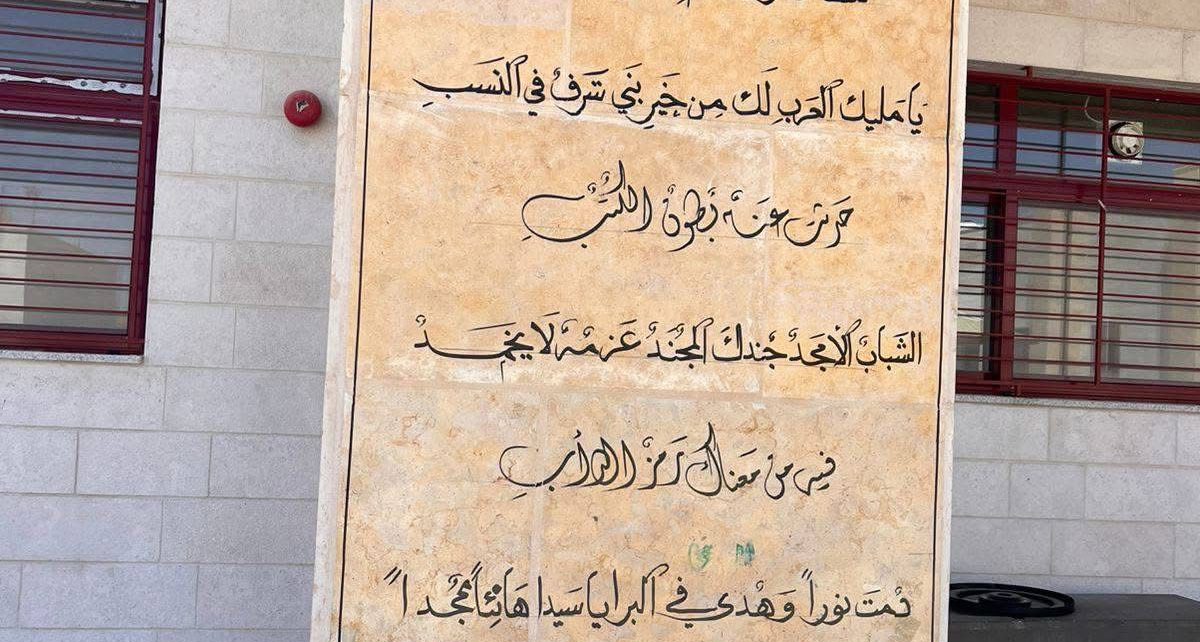 يا مليك العرب لك من خير نبي شرف في النسب
حدثت عنه بطون الكتب
الشباب الأمجد جندك المجند عزمه لا يخمد
فيه من معناك رمز الدأب
دمت نوراً وهدى في البرايا سيدا هانئاً ممجداً